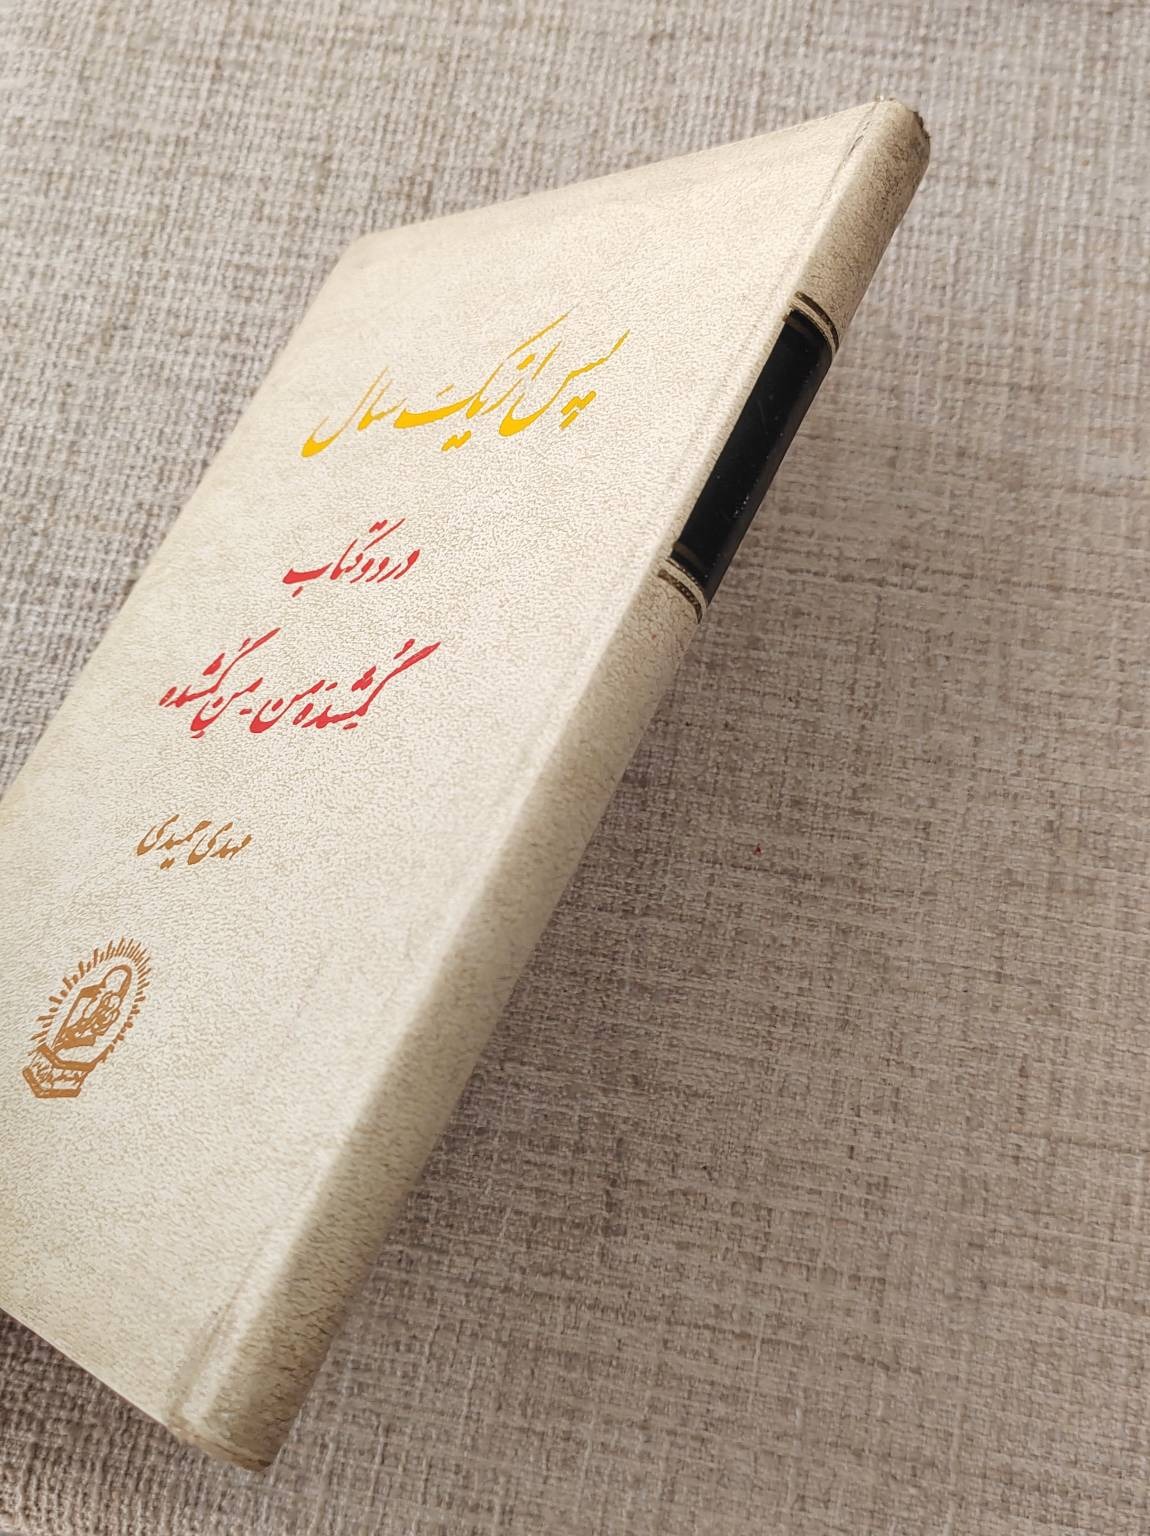 پس از یک سال
در دو کتاب
گمشدهٔ من - من گمشده
مهدی حمیدی